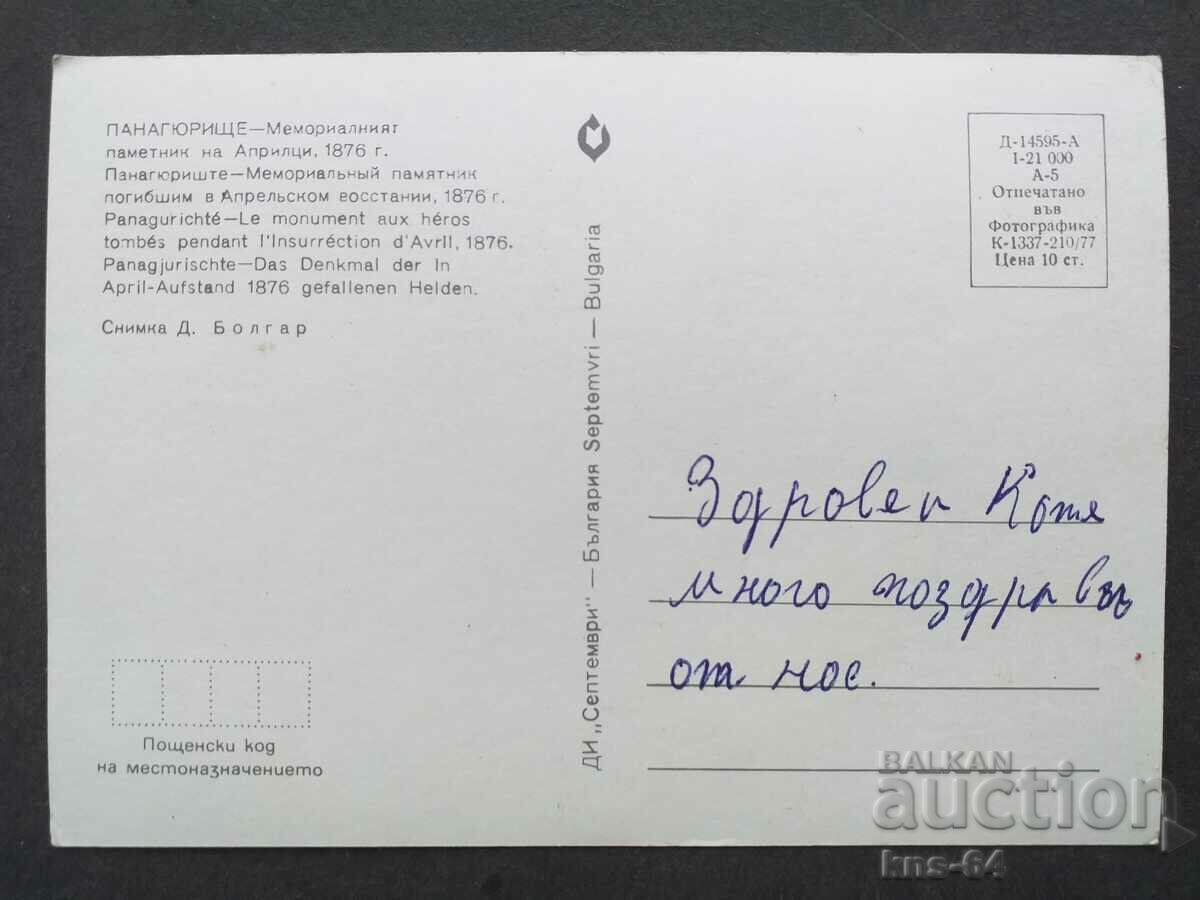 ПАНАГЮРИЩЕ—Мемориалният
паметник на Априлци, 1876 г.
Панагюриште—Мемориальный памятник
погибшим в Апрельском восстании, 1876 г.
Panagurichté—Le monument aux héros
tombés pendant l'Insurréction d'Avril, 1876.
Panagjurischte—Das Denkmal der In
April-Aufstand 1876 gefallenen Helden.
Снимка Д. Болгар
Пощенски код
на местоназначението
ДИ „Септември" — България Septemvri — Bulgaria
Д-14595-А
1-21 000
А-5
Отпечатано
във
Фотографика
К-1337-210/77
Цена 10 ст.
Здровей
много
от нос.
BALKAN
auction
kns-64